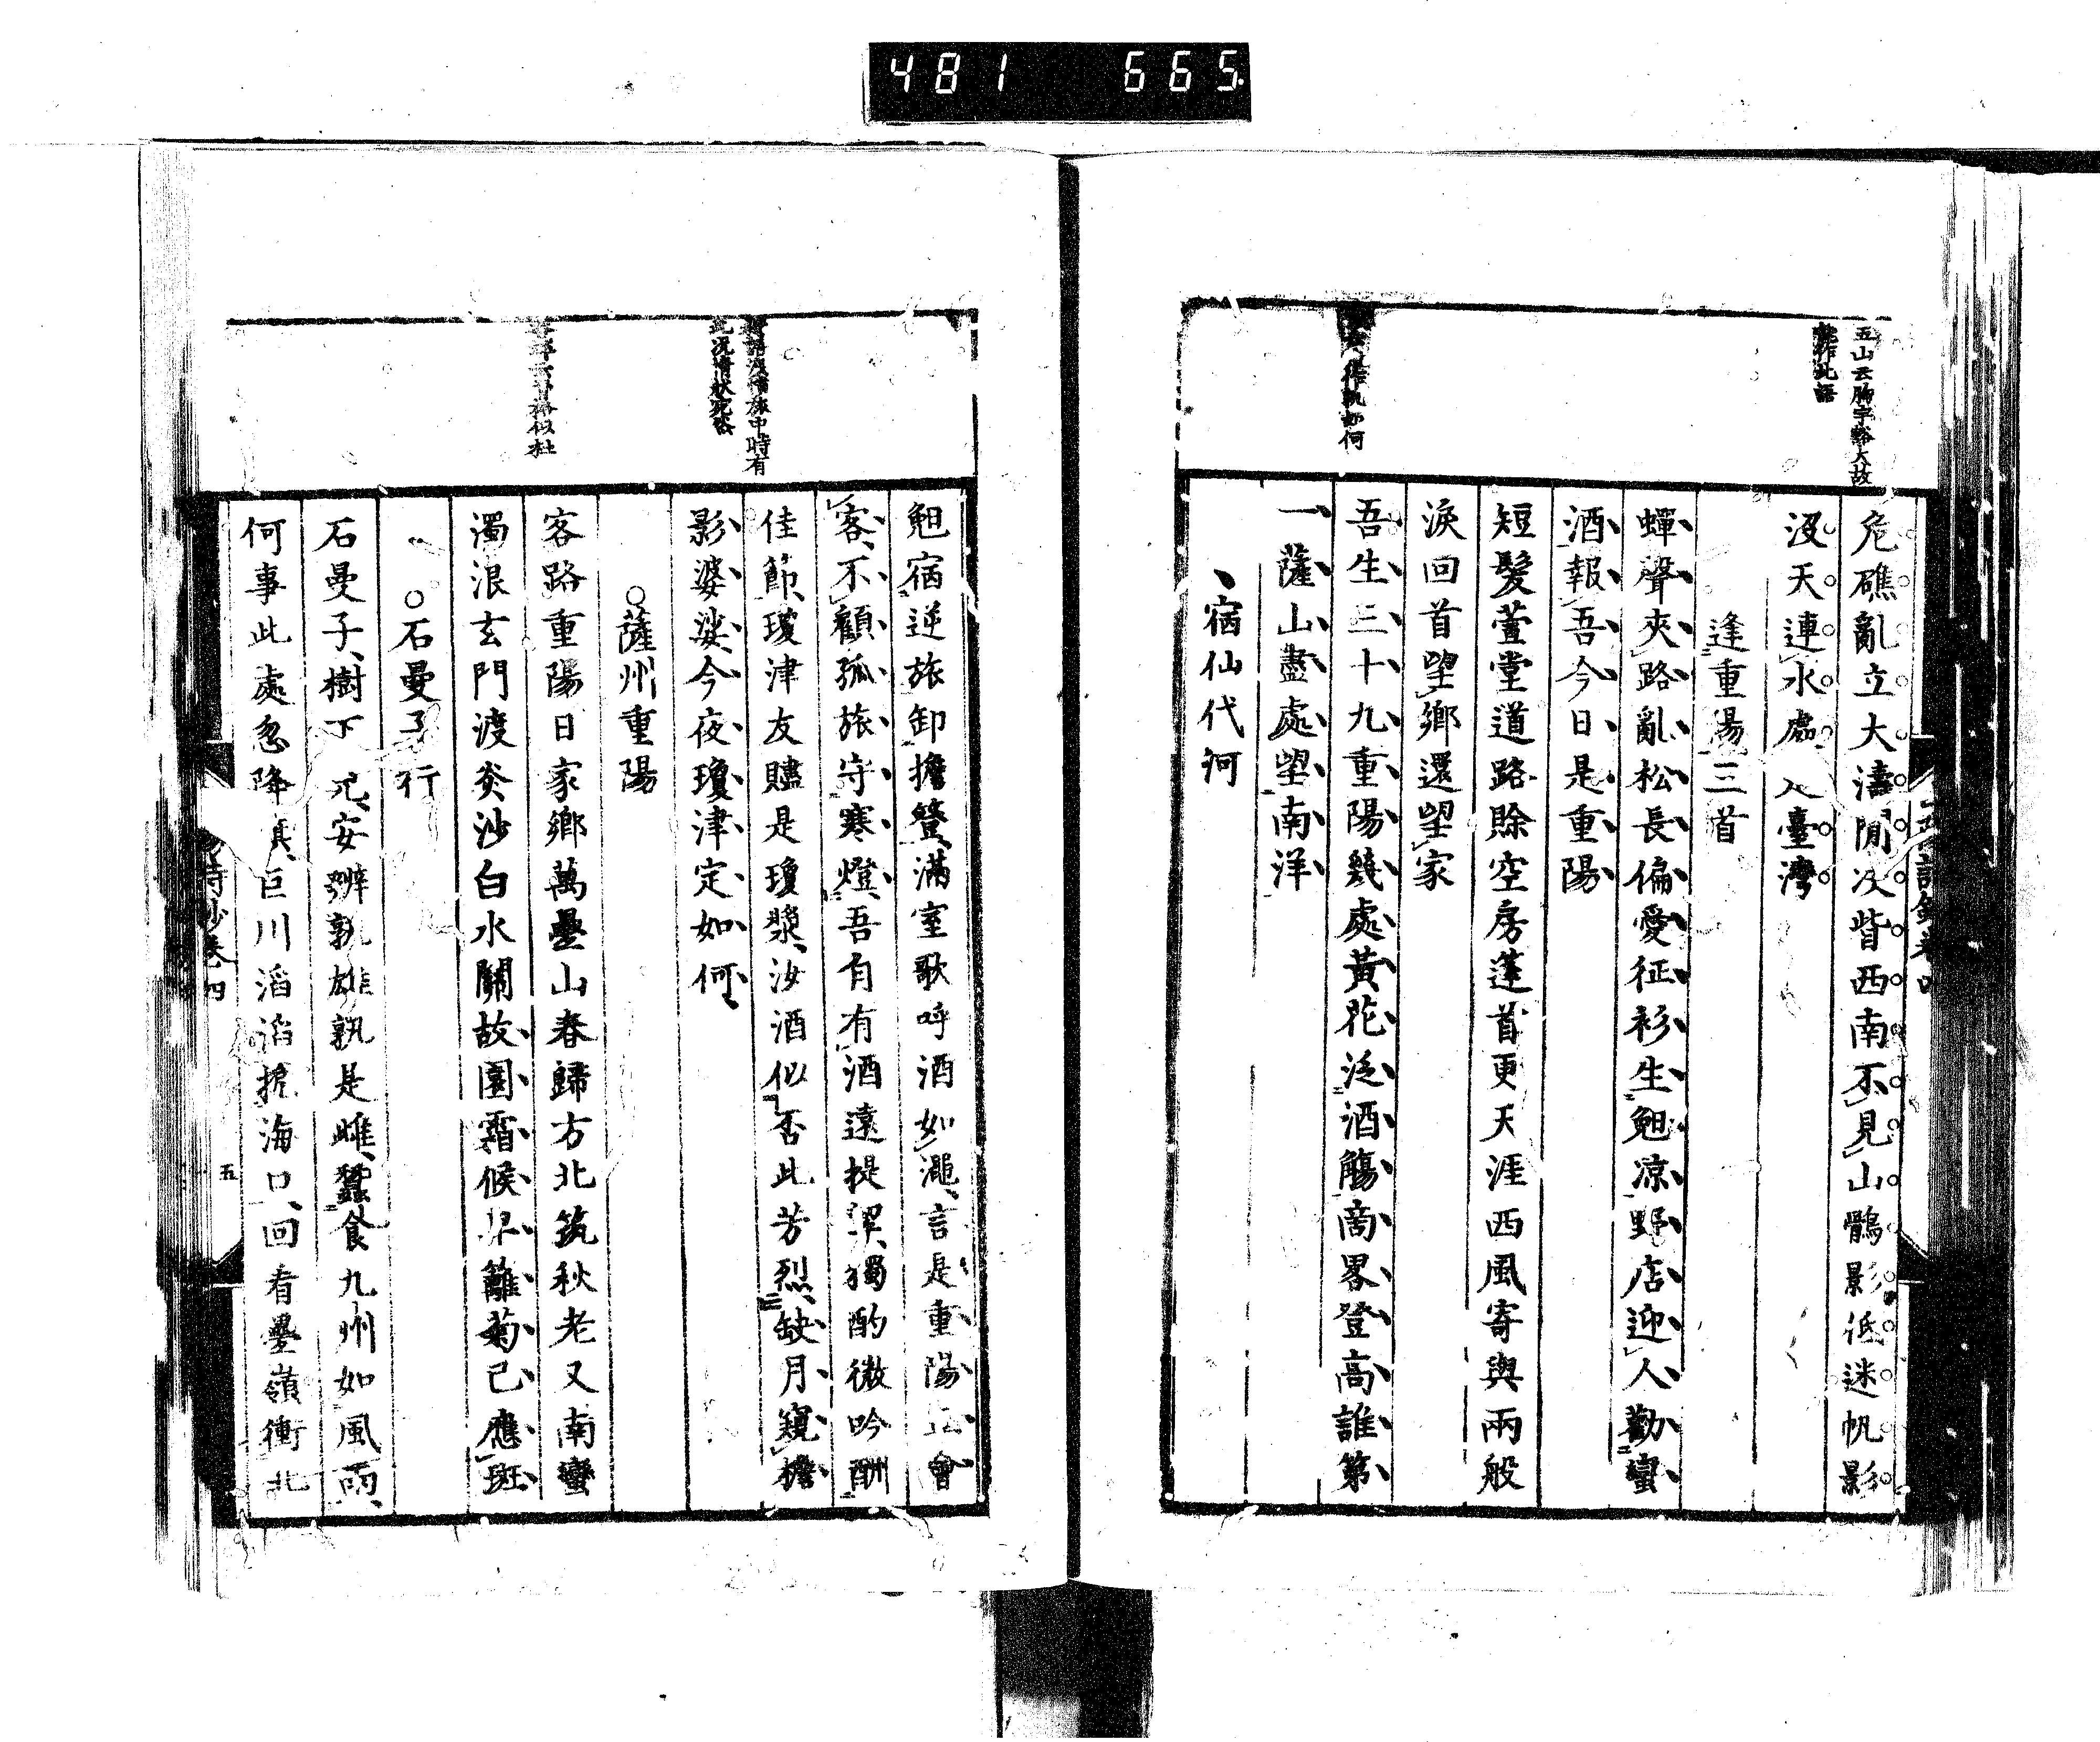 481 665
五山云胸宇豁大故
能作此語
危礁亂立大濤間決眥西南不見山鶻影低迷帆影
沒天連水處入臺灣
逢重陽三首
蟬聲夾路亂松長偏愛征衫生䩄凉野店迎人勸蠻
酒報吾今日是重陽
短髮萱堂道路賒空房蓬首更天涯西風寄與兩般
淚回首望鄉還望家
吾生三十九重陽幾處黃花泛酒觴商畧登高誰第
一薩山盡處望南洋
宿仙代河
旅中時有
況情狀宛然
似杜
宿逆旅卸擔簦滿室歌呼酒如澠言是重陽會
客不顧孤旅守寒燈吾自有酒遠提挈獨酌微吟酬
佳節瓊津友贐是瓊漿汝酒似否此芳烈缺月窺檐
影婆娑今夜瓊津定如何
○薩州重陽
客路重陽日家鄉萬疊山春歸方北筑秋老又南蠻
濁浪玄門渡炎沙白水關故園霜候早籬菊已應斑
○石曼子行
石曼子樹下兀安辨孰雄孰是雌蠶食九州如風雨
何事此處忽降旗巨川滔滔搶海口回看疊嶺衝北
詩鈔卷四
五